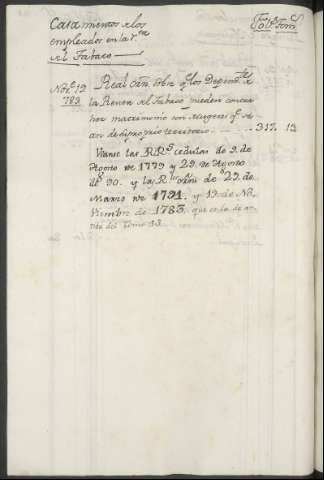 Casamientos de los
Fol.s Tom.s
empleados en la r.ta
del Tabaco
Nov.e 19 Real orn. sobre q.e los Depend.tes de
783. la Renta del Tabaco puedan contra-
her matrimonio con mugeres q.e se-
an de su propio territorio 317. 13
Veanse las R.R.s cedulas de 9. de
Agosto de 1779 y 29. de Agosto
de 80. y la R.l orn. de 29. de
Marzo de 1791. y 19. de No-
viembre de 1783. que está de
del tomo 13.